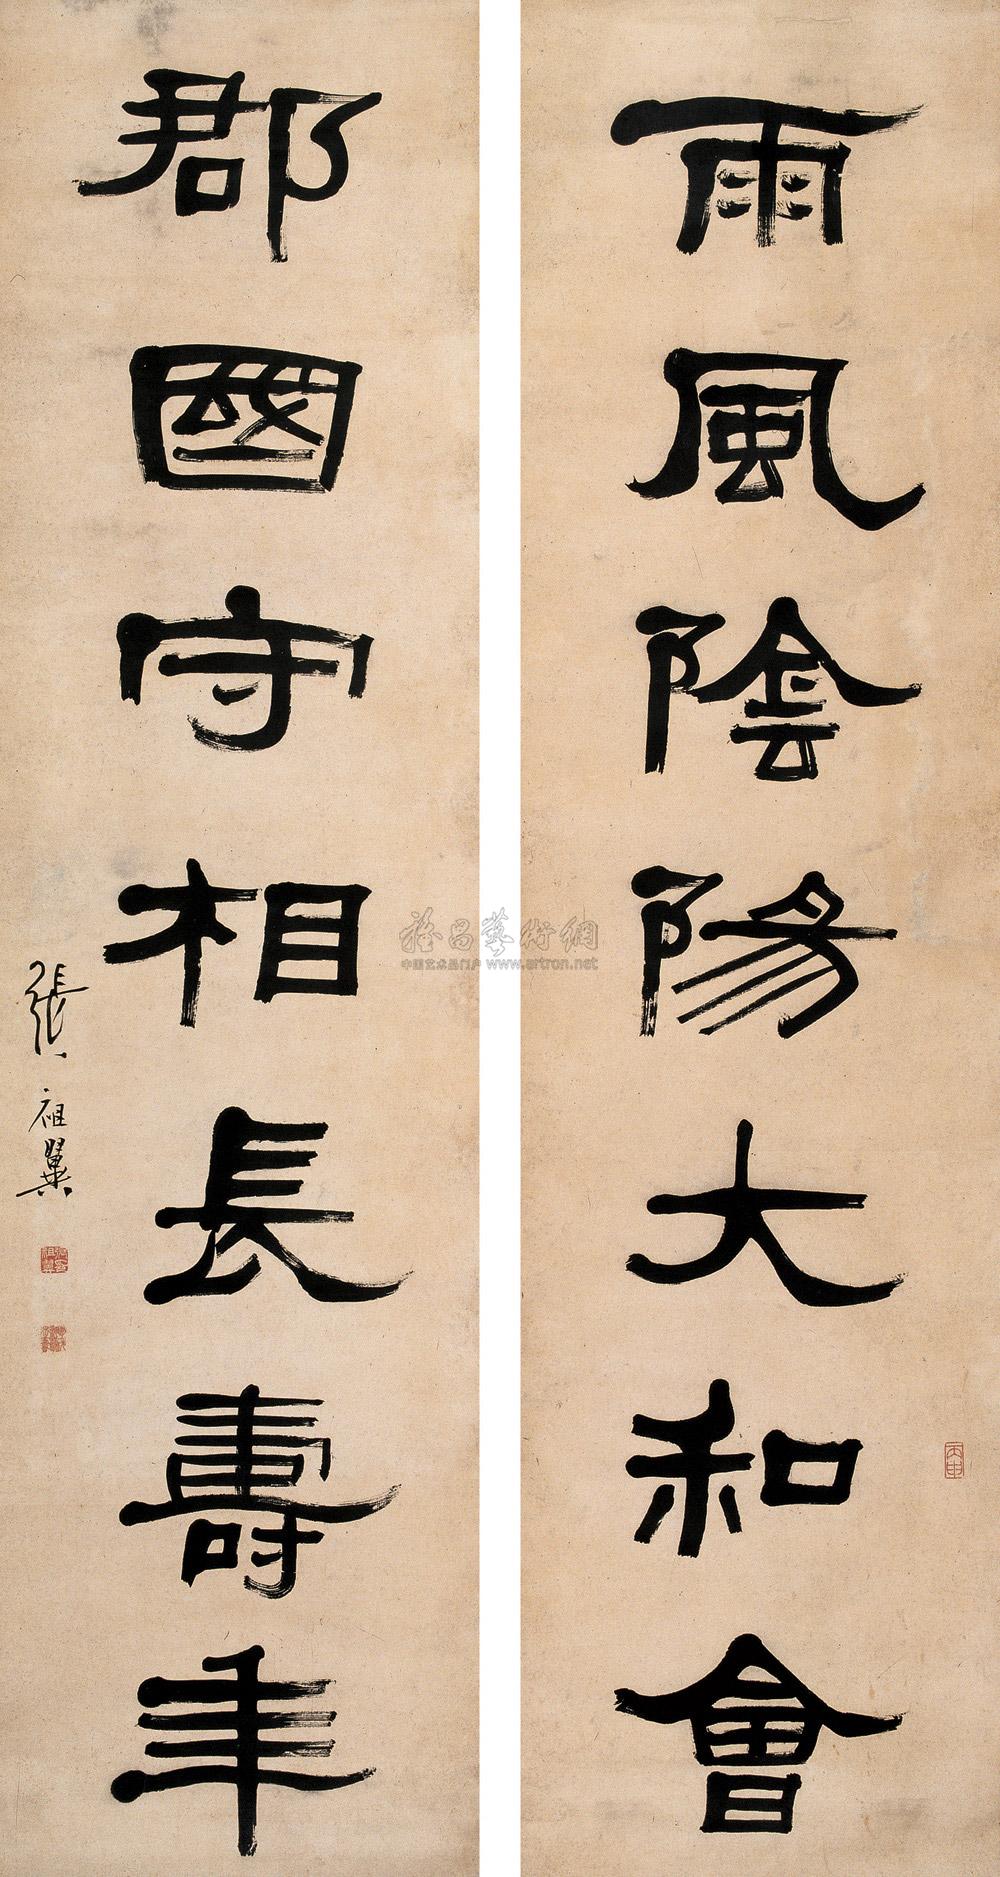 雨風陰陽大和會
郡國守相長壽年
張祖翼
雅昌藝術網
中国艺术品门户 www.artron.net